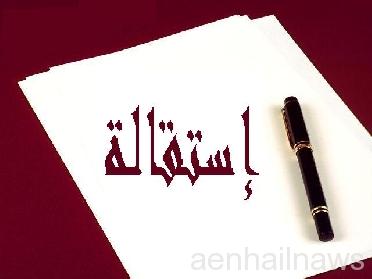 إستقالة
aenhailnaws